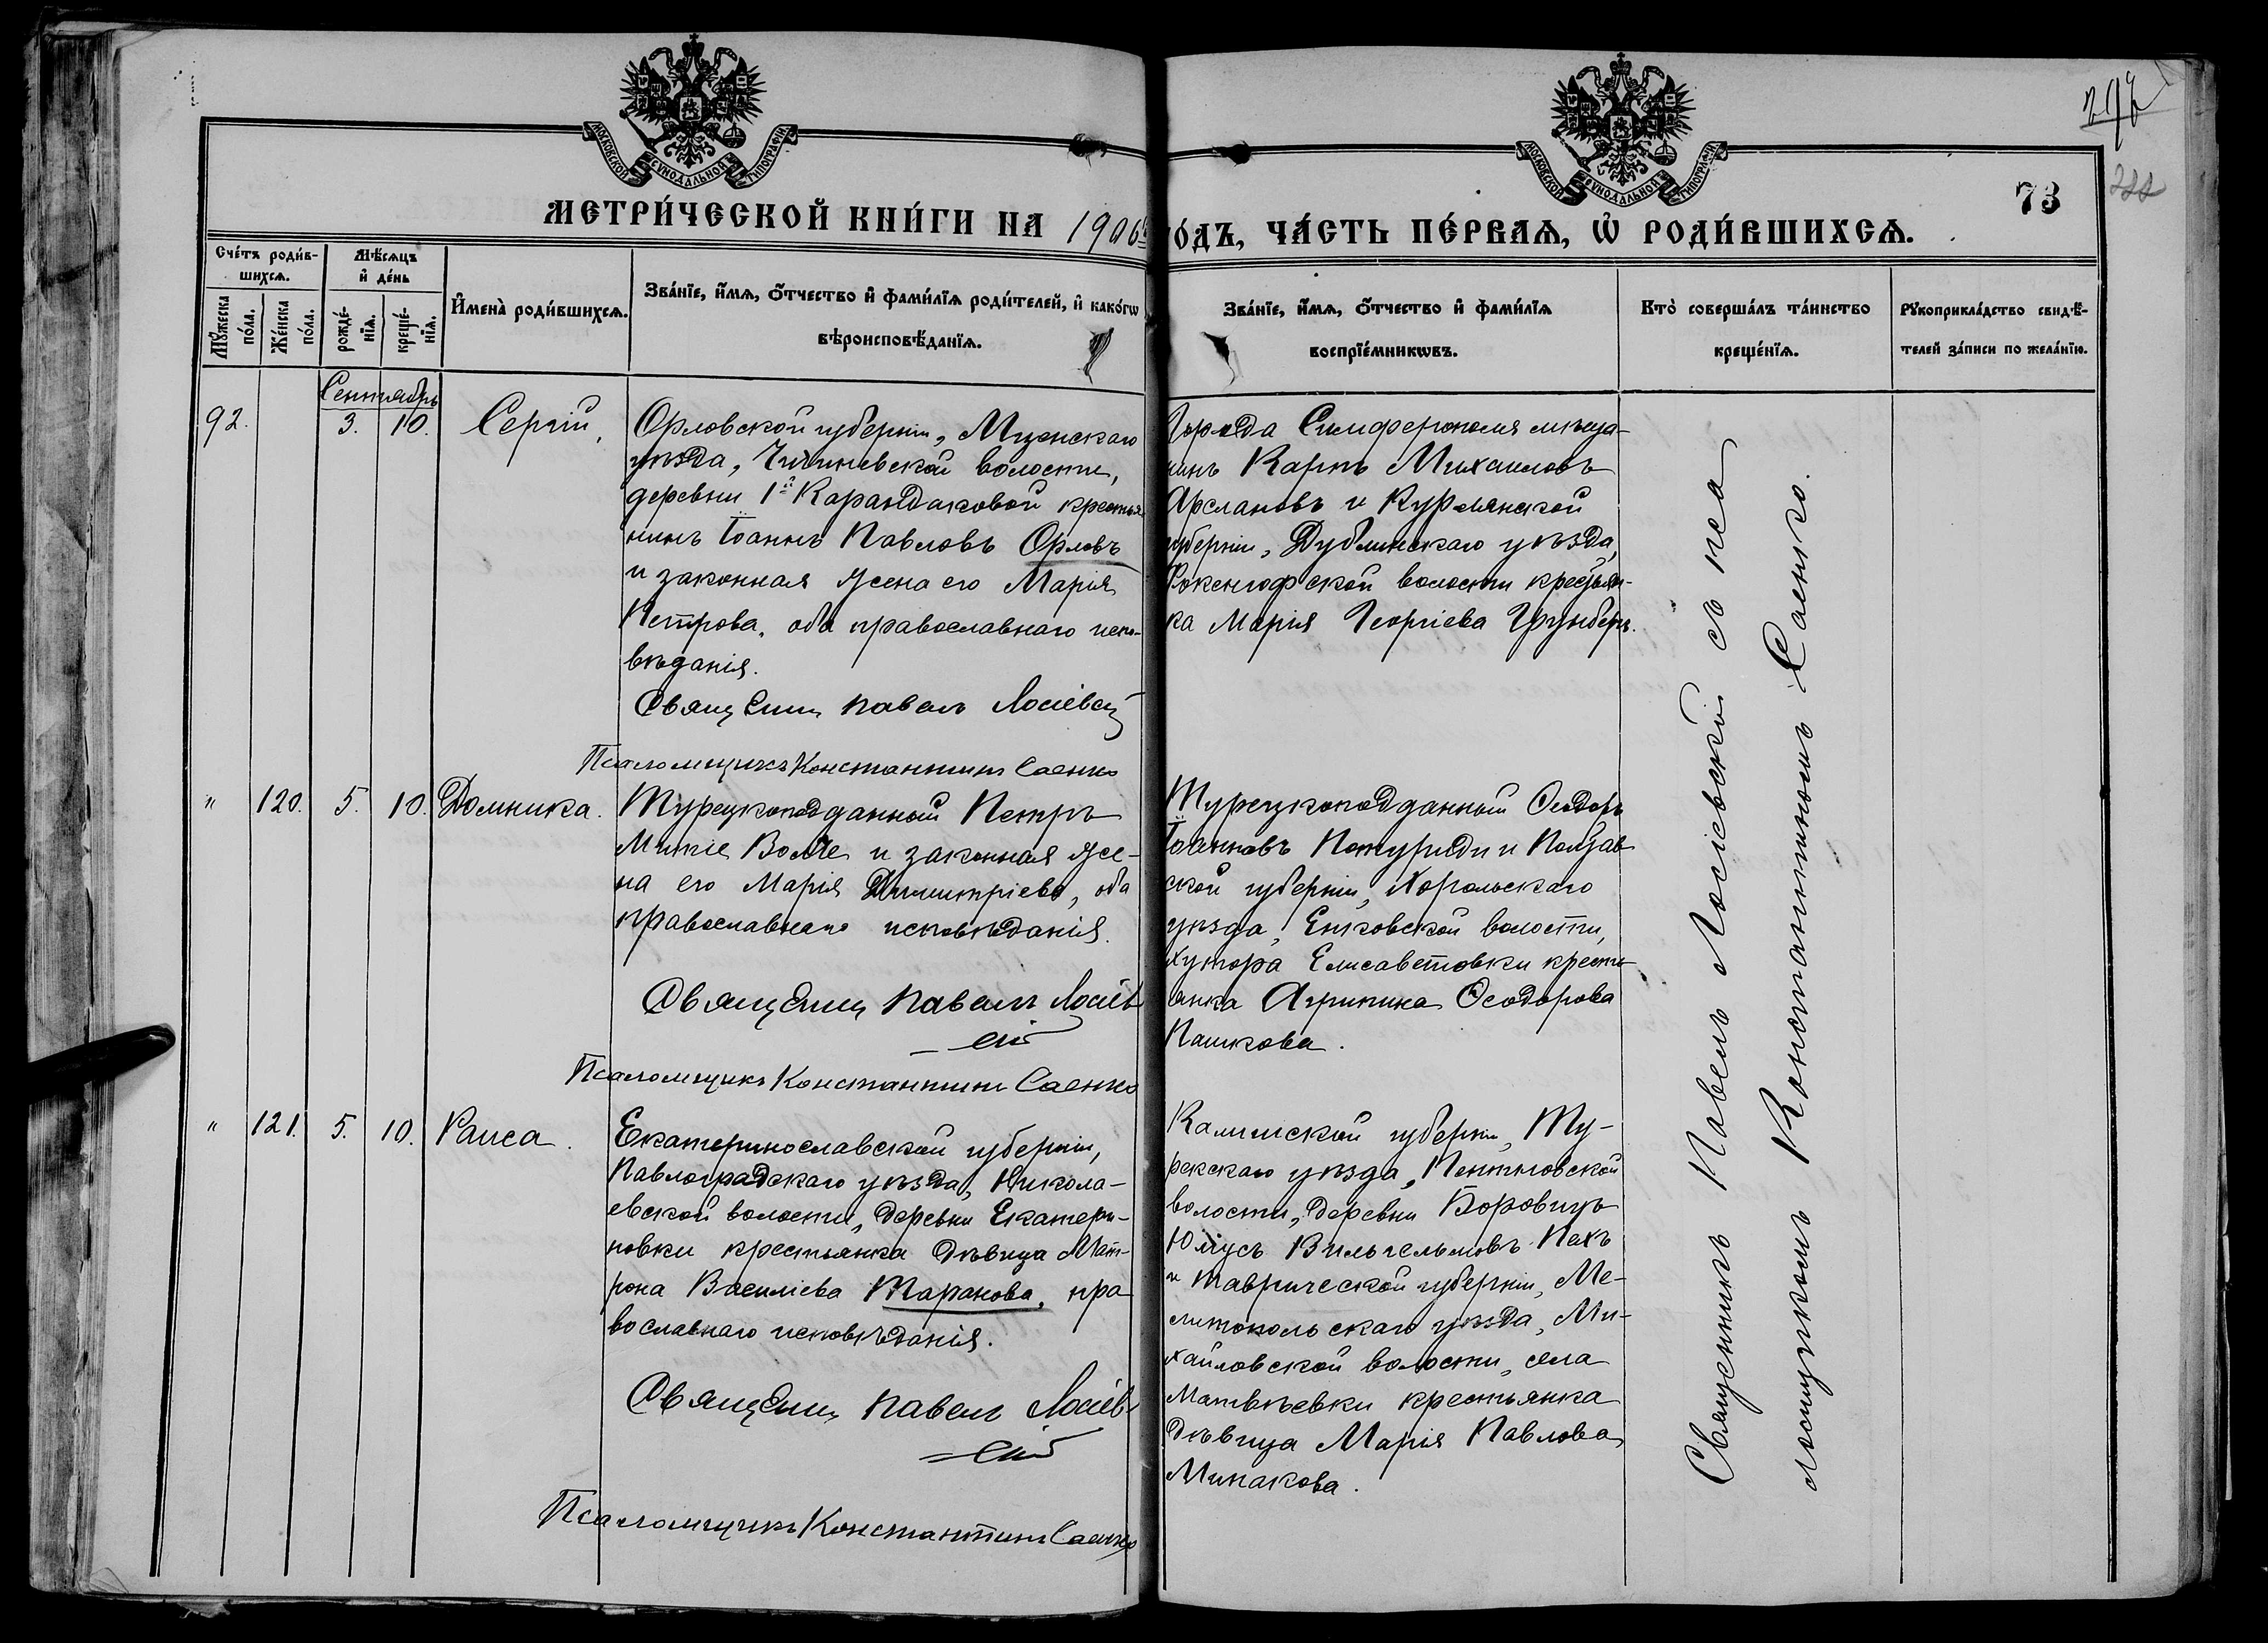 МОСКОВСКОЙ СѴНОДАЛЬНОЙ ТИПОГРАФІИ
МОСКОВСКОЙ СѴНОДАЛЬНОЙ ТИПОГРАФІИ
73
МЕТРИ́ЧЕСКОЙ КНИ́ГИ НА 1906
О́ДЪ, ЧА́СТЬ ПЕ́РВАѦ, Ѡ҆ РОДИ́ВШИХСѦ.
Сче́тъ роди́в-
шихсѧ.
Мꙋ́жеска
по́ла.
Же́нска
по́ла.
Мѣ́сѧцъ
и҆ де́нь
рожде́-
нїѧ.
креще́-
нїѧ.
И҆мена̀ роди́вшихсѧ.
Зва́нїе, и҆́мѧ, ѻ҆́тчество и҆ фами́лїѧ роди́телей, и҆ како́гѡ
вѣроисповѣ́данїѧ.
Зва́нїе, и҆́мѧ, ѻ҆́тчество и҆ фами́лїѧ
воспрїе́мникѡвъ.
Кто̀ соверша́лъ та́инство
креще́нїѧ.
Рꙋкоприкла́дство свидѣ́-
телей за́писи по жела́нїю.
Сентябрь
92. 3. 10. Сергій,
Орловской губерніи, Мценскаго
уѣзда, волости,
деревни 1й Карандаковой крестья-
нинъ Іоаннъ Павловъ Орловъ
и законная жена его Марія
Петрова, оба православнаго испо-
вѣданія.
Священник Павелъ Лосіевскій
Псаломщикъ Константинъ Саенко
Города Симферополя мѣща-
нинъ Карпъ Михаиловъ
Арслановъ и Курляндской
губерніи, уѣзда,
волости крестьян-
ка Марія Георгіева Грунберг.
" 120. 5. 10. Домника.
Турецкоподданный Петръ
и законная же-
на его Марія Димитріева, оба
православнаго исповѣданія.
Священник Павелъ Лосіев
-скій
Псаломщикъ Константинъ Саенко
Турецкоподданный Ѳеодоръ
Іоанновъ и Полтав
ской губерніи, Хорольскаго
уѣзда, Енковской волости,
хутора Елисаветовки кресть
янка Агрипина Ѳеодорова
Пашкова.
" 121. 5. 10. Раиса.
Екатеринославской губерніи,
Павлоградскаго уѣзда, Никола-
евской волости, деревни Екатери-
новки крестьянка дѣвица Мат-
рона Василіева Таранова, пра
вославнаго исповѣданія.
Священник Павелъ Лосіев
-скій
Псаломщикъ Константинъ Саенко
Калишской губерніи, Ту-
рекскаго уѣзда,
волости, деревни Боровицъ
Юліусъ Вильгельмовъ Пахъ
и Таврической губерніи, Ме-
литопольскаго уѣзда, Ми-
хайловской волости, села
Матвѣевки крестьянка
дѣвица Марія Павлова
Минакова.
Священникъ Павелъ Лосіевскій съ пса
ломщикомъ Константиномъ Саенко.